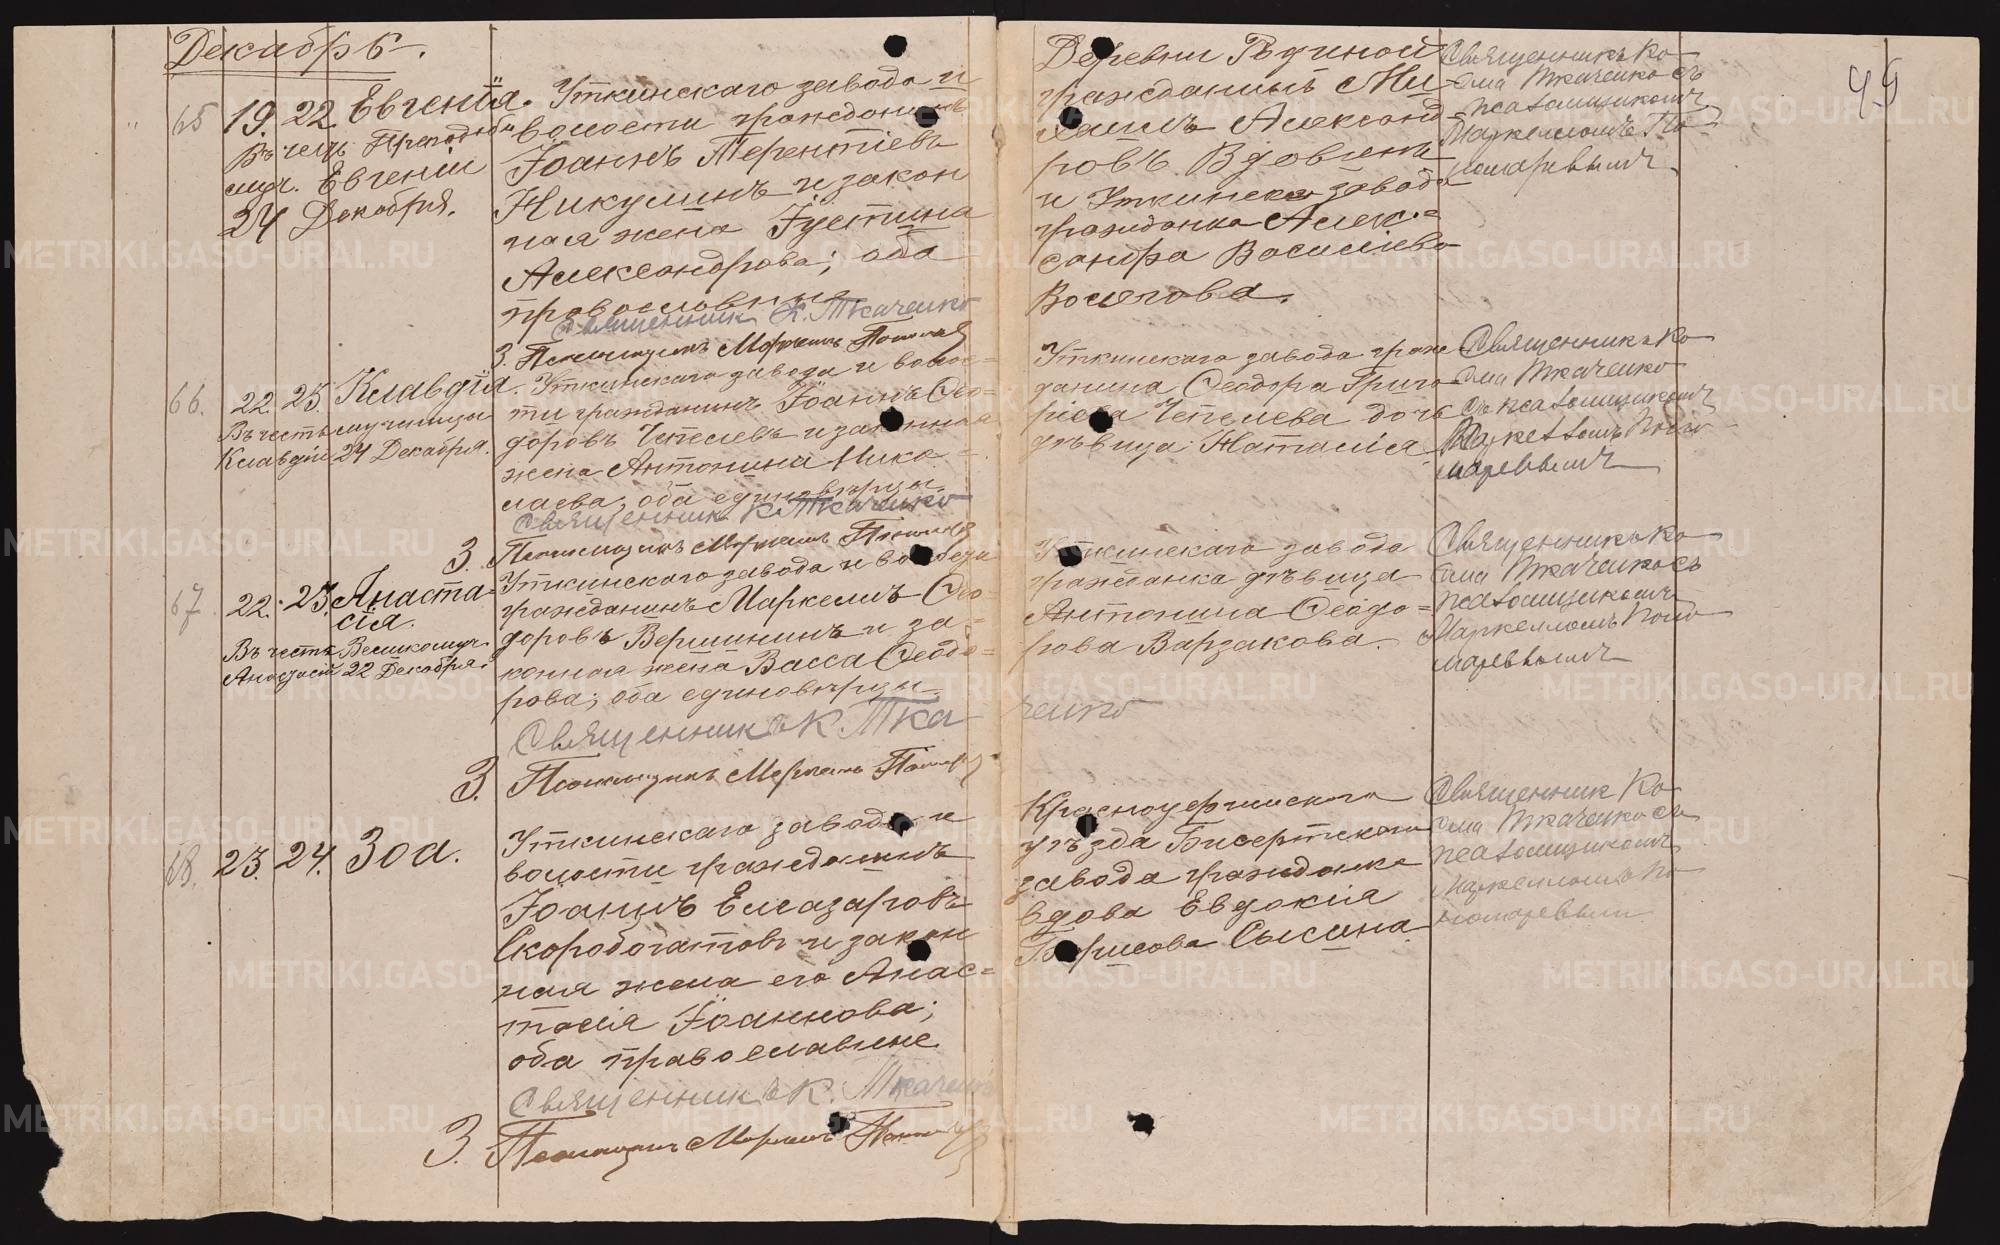 Декабрь.
65 19. 22. Евгенія.
Въ честь Преподобн
муч. Евгеніи
24 Декабря.
Уткинскаго завода и
волости гражданинъ
Іоаннъ Терентіевъ
Никулинъ и закон
ная жена Іустина
Александрова; оба
православные
Священник К. Ткаченко
З. Псаломщикъ Маркеллъ
Деревни
гражданинъ Ми-
хаилъ Александ
ровъ Вдовинъ
и Уткинска завода
гражданка Алек-
сандра Василіева
Волегова.
Священникъ Ко-
сма Ткаченко съ
псаломщикомъ
Маркелломъ По-
номаревымъ
49
66. 22. 25. Клавдія.
Въ честь мученицы
Клавдіи 24 Декабря.
Уткинскаго завода и волос-
ти гражданинъ Іоаннъ Ѳео-
доровъ Чепелевъ и законная
жена Антонина Нико-
лаева, оба единоверцы
Священник К Ткаченко
З. Псаломщикъ Маркеллъ
Уткинскаго завода граж-
данина Ѳеодора Григо-
ріева Чепелева дочь
дѣвица Наталія
Священникъ Ко-
сма Ткаченко
съ псаломщикомъ
Маркелломъ Поно-
маревымъ
67. 22. 25. Анаста-
сія.
Въ честь Великомуч.
Анастасіи 22 Декабря.
Уткинскаго завода и волости
гражданинъ Маркеллъ Ѳео-
доровъ Вершининъ и за-
конная жена Васса Ѳеодо-
рова; оба единоверцы
Священникъ К. Ткаченко
З. Псаломщикъ Маркеллъ
Уткинскаго завода
гражданка дѣвица
Антонина Ѳеодо-
рова Варзакова.
Священникъ Ко-
сма Ткаченко съ
псаломщикомъ
Маркелломъ Поно-
маревымъ
68. 23. 24. Зоа.
Уткинскаго завода и
волости гражданинъ
Іоаннъ Елеазаровъ
Скоробогатовъ и закон
ная жена его Анас-
тасія Іоаннова;
оба православные
Священникъ К. Ткаченко
З. Псаломщикъ Маркеллъ
Красноуфимскаго
уѣзда Бисертскаго
завода гражданка
вдова Евдокія
Борисова Сысина
Священник Ко-
сма Ткаченко съ
псаломщикомъ
Маркелломъ По-
номаревым
METRIKI.GASO-URAL.RU